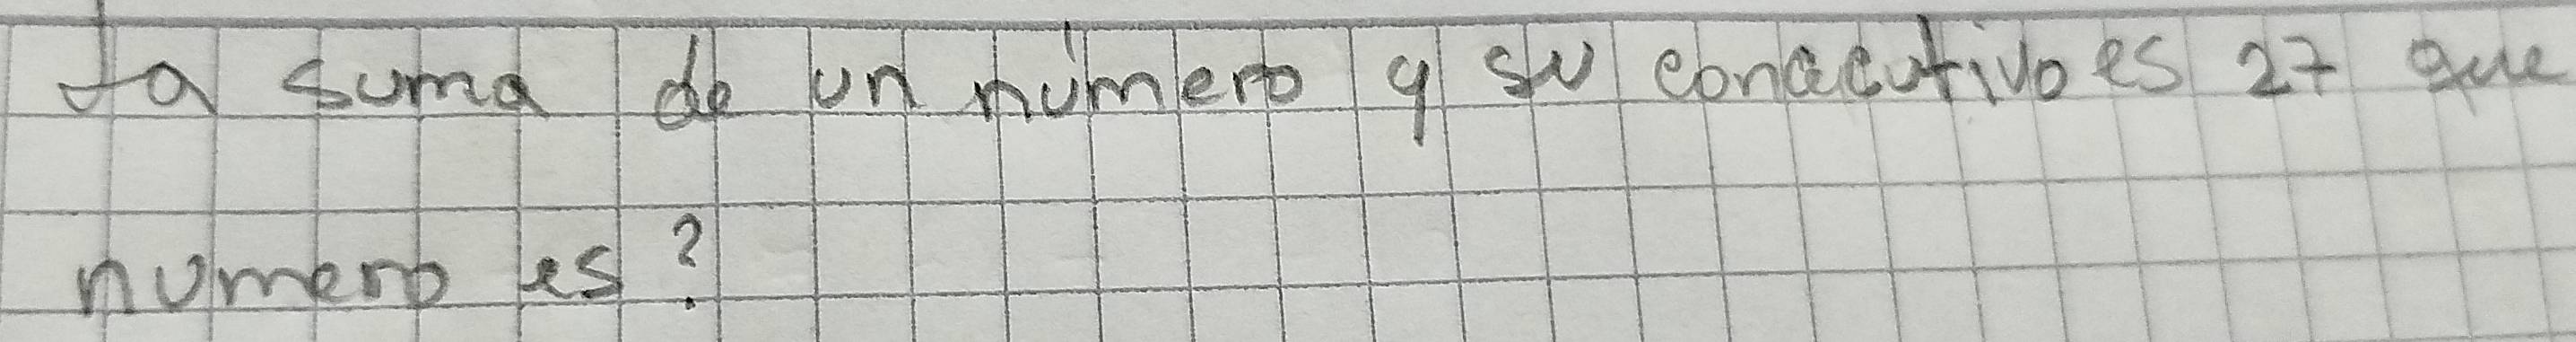 La suma de un número y su conacutivo es 27 que
numero es?